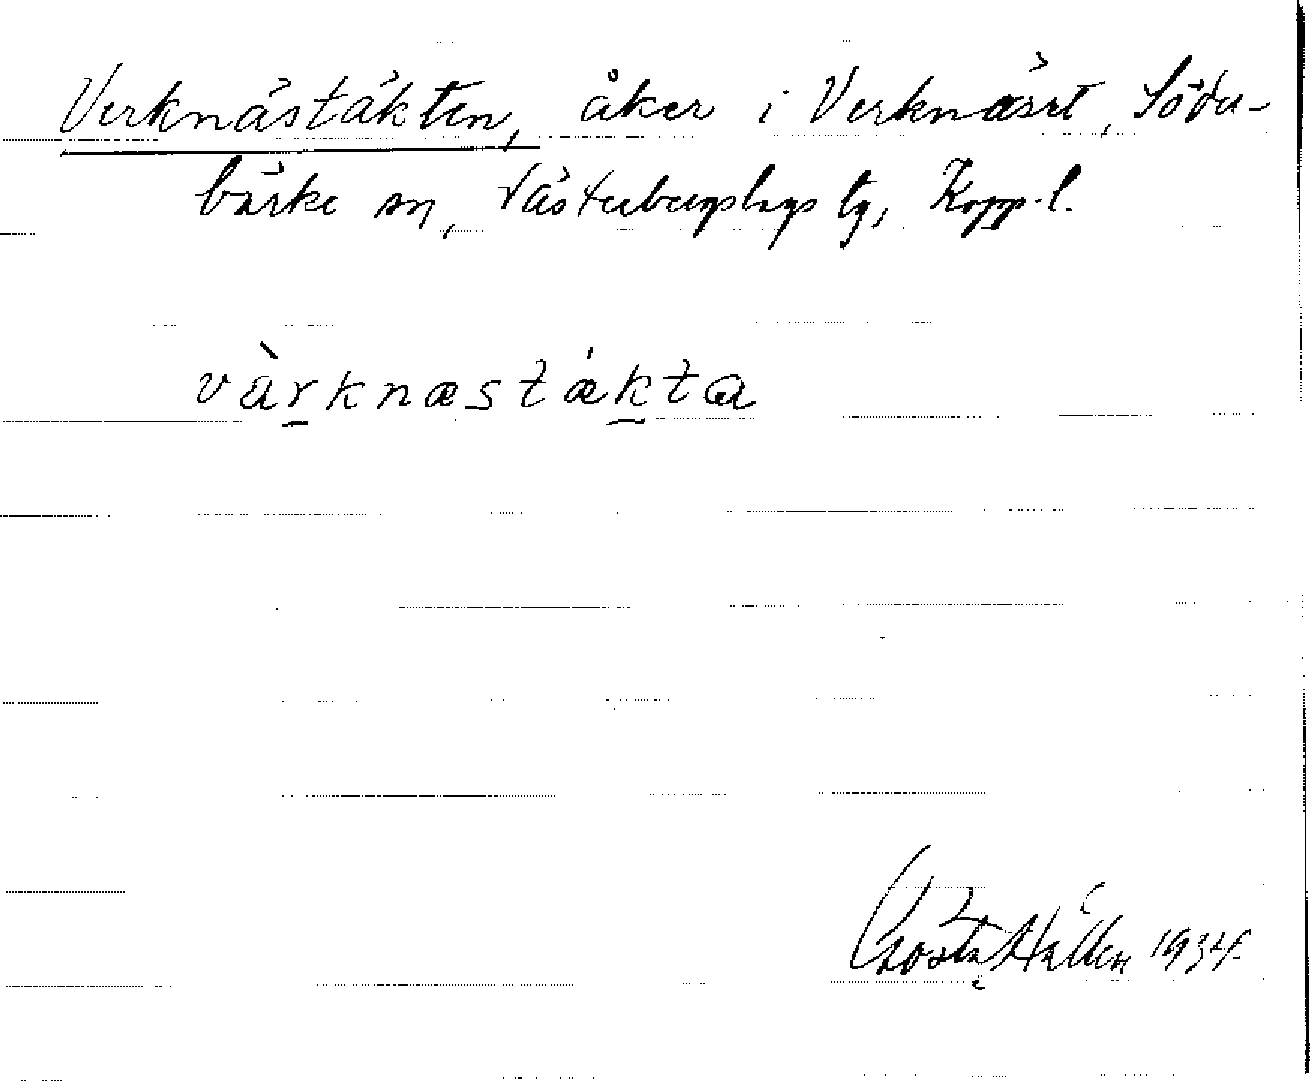 Verknästäkten, åker i Verknäset, Söder-
bärke sn, Västerbergslags tg, Kopp. l.
värknæstækta
Gösta Hallen 1934.